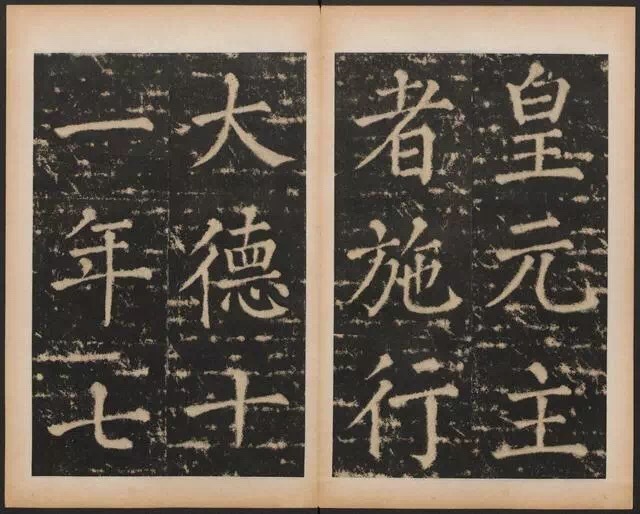 皇元主
者施行
大德十
一年七